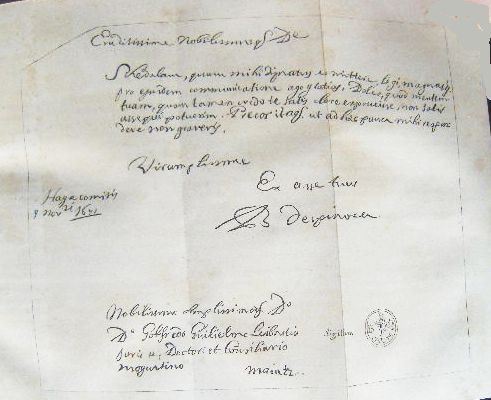 Eruditissime Nobilissimeqs De
Schedulam, quam mihi dignatus es mittere legi magnasqs
pro ejusdem communicatione ago gratias. Doleo, quod mentem
tuam, quam tamen credo te satis clare exposuisse, non satis
assequi potuerim. Precor itaqs ut ad haec pauca mihi respon
dere non graveris.
Vir amplissime
Ex asse tuus
B Despinoza
Haga comitis
9 Novris 1671
Nobilissimo Amplissimoqs Do
Do Gotfredo Guilielmo Leibnitio
Juris u. Doctori et Consiliario
Moguntino Maintz.
Sigillum